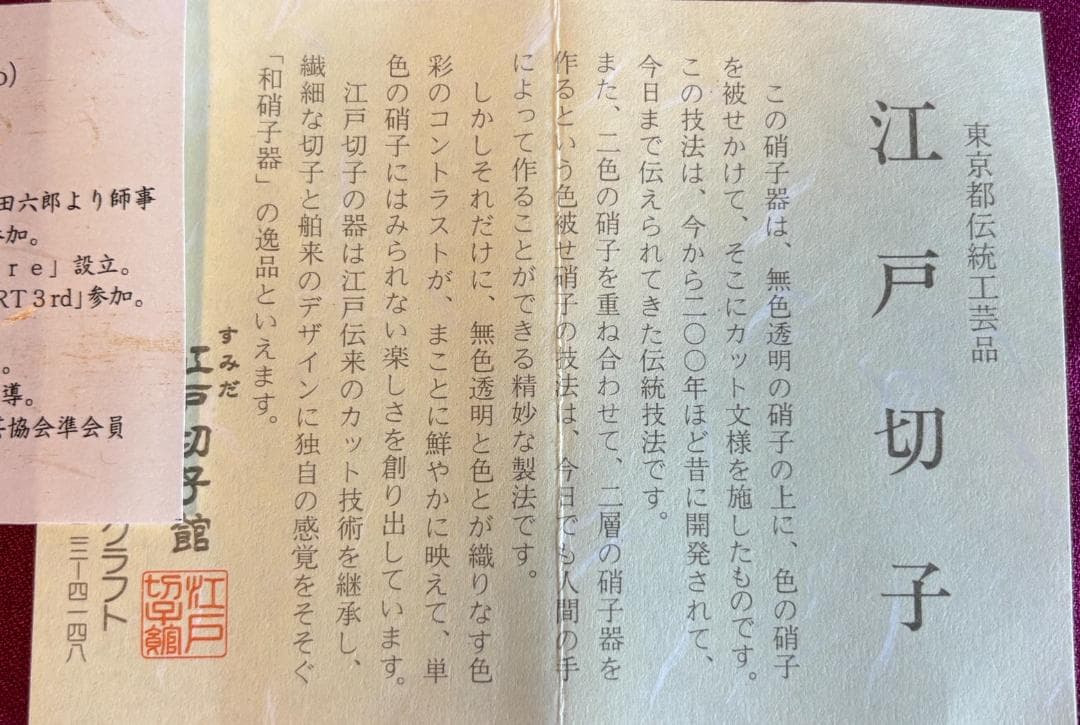 東京都伝統工芸品
江戸切子
この硝子器は、無色透明の硝子の上に、色の硝子
を被せかけて、そこにカット文様を施したものです。
この技法は、今から二〇〇年ほど昔に開発されて、
今日まで伝えられてきた伝統技法です。
また、二色の硝子を重ね合わせて、二層の硝子器を
作るという色被せ硝子の技法は、今日でも人間の手
によって作ることができる精妙な製法です。
しかしそれだけに、無色透明と色とが織りなす色
彩のコントラストが、まことに鮮やかに映えて、単
色の硝子にはみられない楽しさを創り出しています。
江戸切子の器は江戸伝来のカット技術を継承し、
繊細な切子と舶来のデザインに独自の感覚をそそぐ
「和硝子器」の逸品といえます。
すみだ
江戸切子館
江戸
切子館
クラフト
三一四一四八
田六郎より師事
参加。
re」設立。
RT3rd」参加。
導。
協会準会員